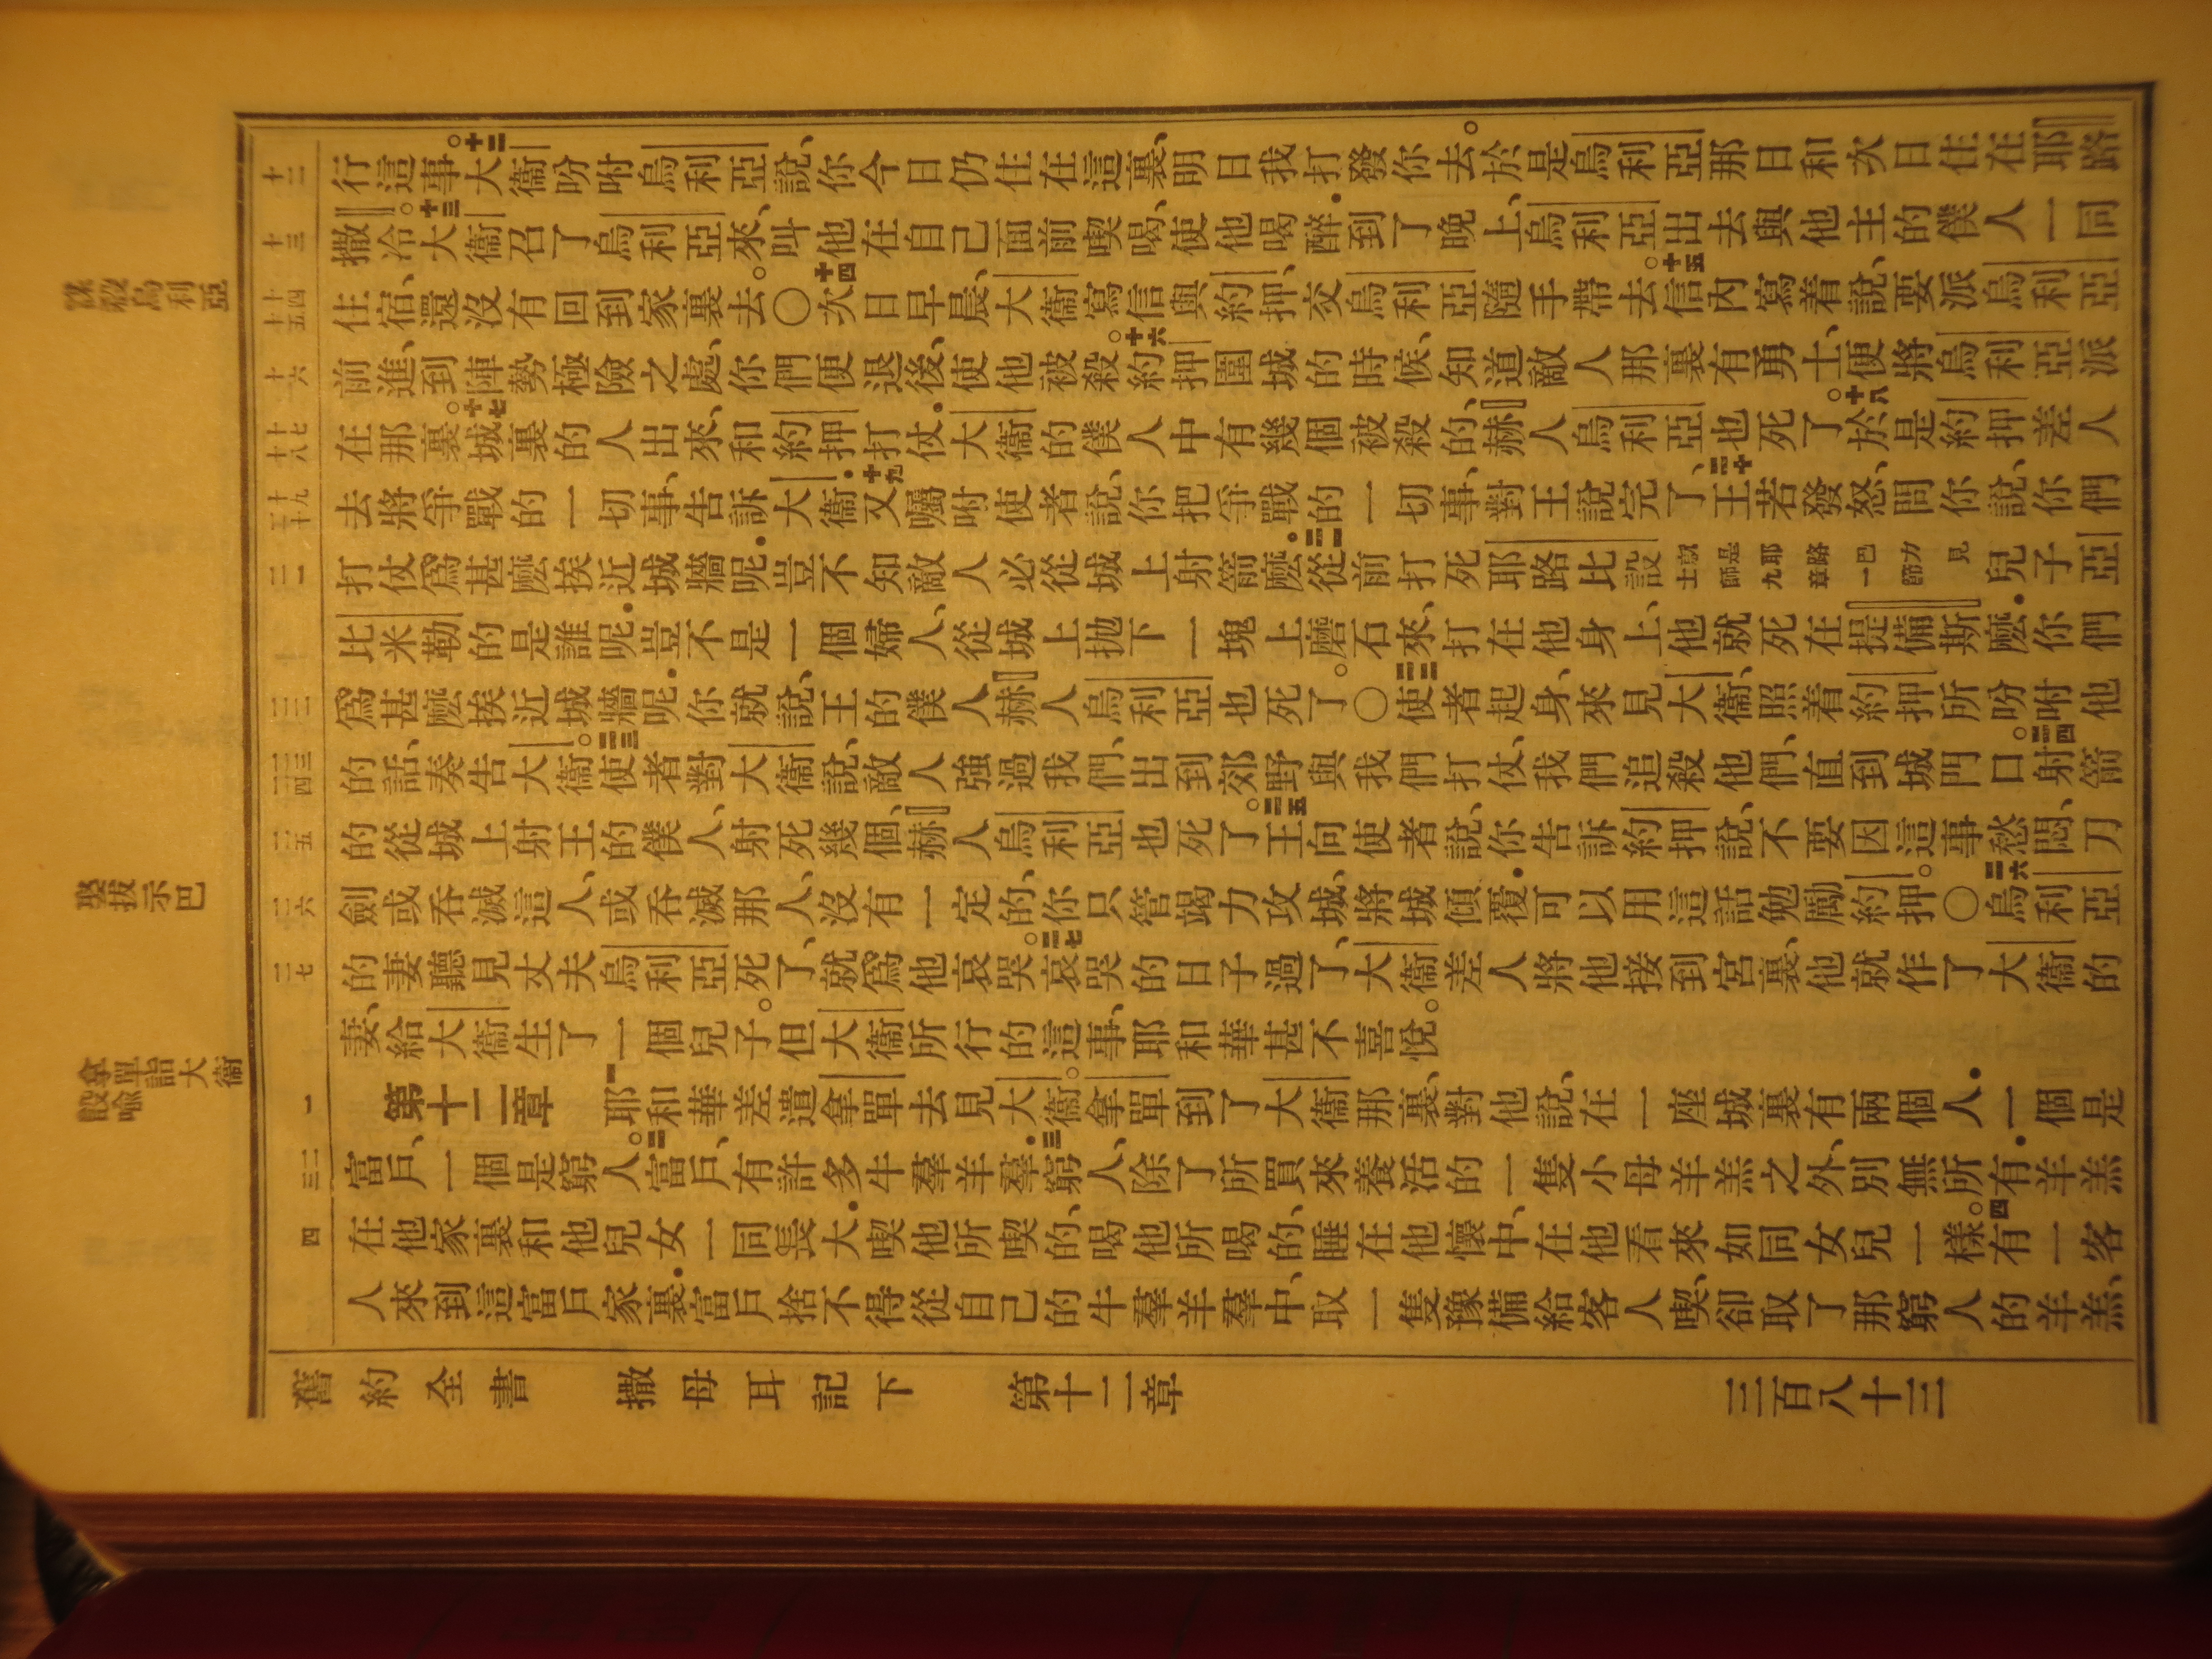 謀殺烏利亞
娶拔示巴
拿單詣大衛
設喻
十二
十三
十四
十五
十六
十七
十八
十九
二十
二一
二二
二三
二四
二五
二六
二七
一
二
三
四
行這事。十二大衛吩咐烏利亞說、你今日仍住在這裏、明日我打發你去。於是烏利亞那日和次日住在耶路
撒冷。十三大衛召了烏利亞來、叫他在自己面前喫喝、使他喝醉．到了晚上、烏利亞出去與他主的僕人一同
住宿、還沒有回到家裏去。〇十四次日早晨、大衛寫信與約押、交烏利亞隨手帶去。十五信內寫着說、要派烏利亞
前進、到陣勢極險之處、你們便退後、使他被殺。十六約押圍城的時候、知道敵人那裏有勇士、便將烏利亞派
在那裏。十七城裏的人出來、和約押打仗．大衛的僕人中有幾個被殺的、赫人烏利亞也死了。十八於是約押差人
去將爭戰的一切事、告訴大衛．十九又囑咐使者說、你把爭戰的一切事、對王說完了、二十王若發怒、問你說、你們
打仗爲甚麼挨近城牆呢．豈不知敵人必從城上射箭麼。二一從前打死耶路比設就是耶路巴力見士師九章一節兒子亞
比米勒的是誰呢．豈不是一個婦人、從城上抛下一塊上磨石來、打在他身上、他就死在提備斯麼．你們
爲甚麼挨近城牆呢．你就說、王的僕人赫人烏利亞也死了。〇二二使者起身、來見大衛、照着約押所吩咐他
的話、奏告大衛。二三使者對大衛說、敵人強過我們、出到郊野與我們打仗、我們追殺他們、直到城門口。二四射箭
的從城上射王的僕人、射死幾個、赫人烏利亞也死了。二五王向使者說、你告訴約押說、不要因這事愁悶、刀
劍或吞滅這人、或吞滅那人、沒有一定的、你只管竭力攻城、將城傾覆．可以用這話勉勵約押。〇二六烏利亞
的妻聽見丈夫烏利亞死了、就爲他哀哭。二七哀哭的日子過了、大衛差人將他接到宮裏、他就作了大衛的
妻、給大衛生了一個兒子。但大衛所行的這事、耶和華甚不喜悅。
第十二章　一耶和華差遣拿單去見大衛。拿單到了大衛那裏、對他說、在一座城裏有兩個人．一個是
富戶、一個是窮人。二富戶、有許多牛羣羊羣．三窮人、除了所買來養活的一隻小母羊羔之外、別無所有．羊羔
在他家裏和他兒女一同長大．喫他所喫的、喝他所喝的、睡在他懷中、在他看來如同女兒一樣。四有一客
人來到這富戶家裏．富戶捨不得從自己的牛羣羊羣中、取一隻豫備給客人喫、卻取了那窮人的羊羔、
舊約全書　撒母耳記下　第十二章　三百八十三